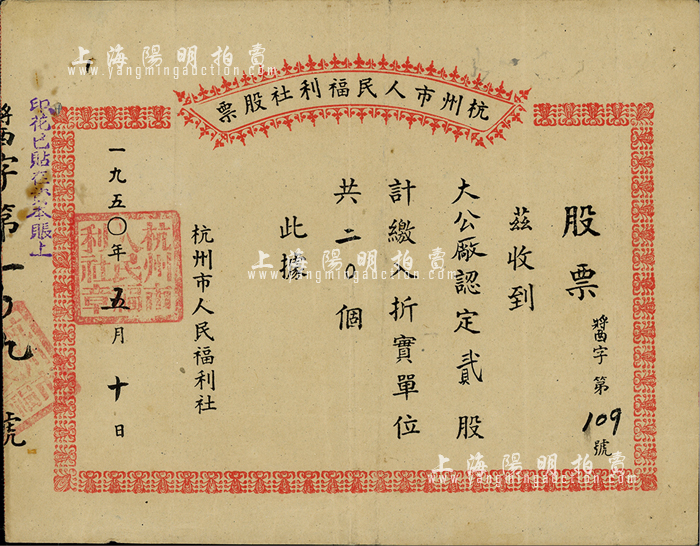 杭州市人民福利社股票
股票
醬字第109號
茲收到
大公廠認定貳股
計繳入折實單位
共二〇個
此據
杭州市人民福利社
一九五〇年五月十日
杭州市人民福利社章
印花已貼在
本賬上
醬字第一〇九號
上海陽明拍賣
www.yangmingauction.com
上海陽明拍賣
www.yangmingauction.com
上海陽明拍賣
www.yangmingauction.com